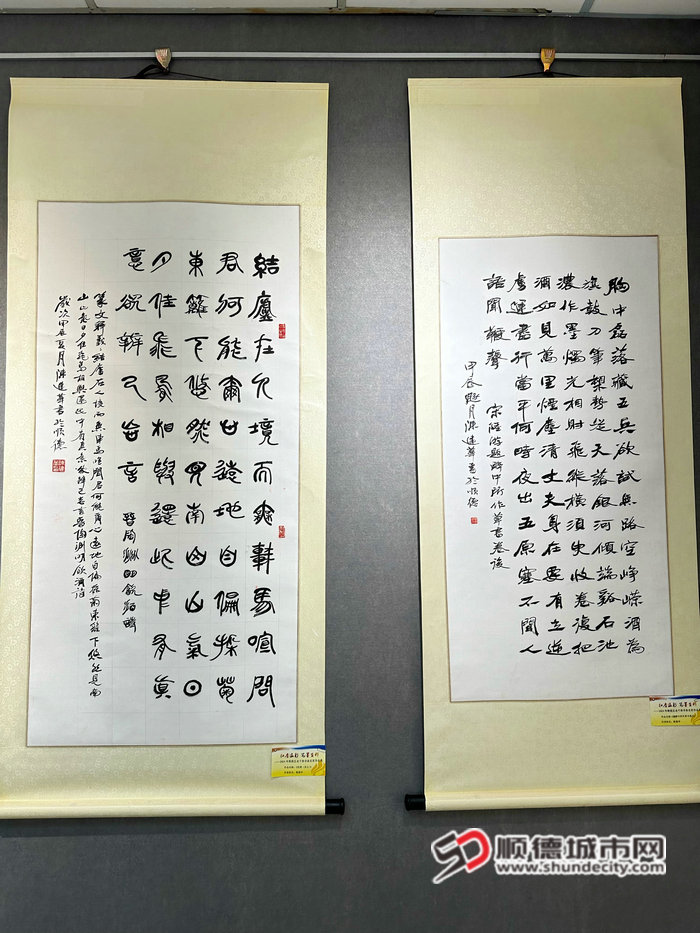 結廬在人境而無車馬喧問
君何能爾心遠地自偏採菊
東籬下悠然見南山山氣日
夕佳飛鳥相與還此中有真
意欲辨已忘言 晉陶淵明飲酒
結廬在人境而無車馬喧問君何能爾心遠地自偏採菊東籬下悠然見南
山山氣日夕佳飛鳥相與還此中有真意欲辨已忘言晉陶淵明飲酒詩
歲次甲辰夏月陳達華書於順德
胸中磊落藏五兵欲試無路空崢嶸酒為
旗鼓刀筆槊勢從天落銀河傾端谿石池
濃作墨燭光相射飛縱橫須臾收卷復把
酒如見萬里煙塵清丈夫身在要有立逆
虜運盡行當平何時夜出五原塞不聞人
語聞鞭聲 宋陸游題醉中所作草書卷後
甲辰月陳達華書於順德
顺德城市网
www.shundecity.com